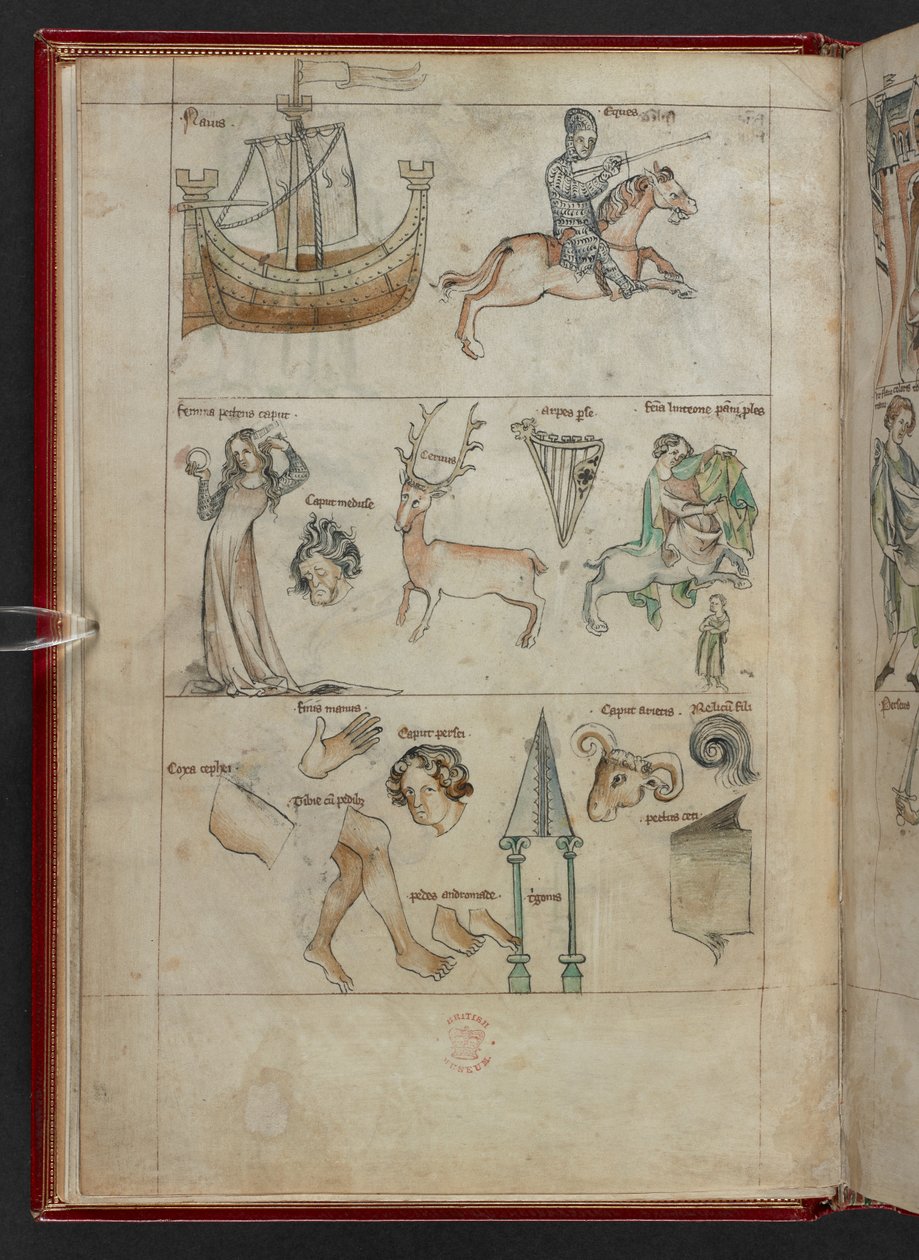 Nauis.
Eques
femina pectens caput.
Ceruus
arpes pse.
fēia linteone pāni ples
Caput meduse
finis manus.
Caput persei.
Caput arietis.
Relicū fili
Coxa cephei.
Tibie cū pedibȝ
pectus ceti.
pedes andromade.
t'gonus
BRITISH
MUSEUM
Perseus